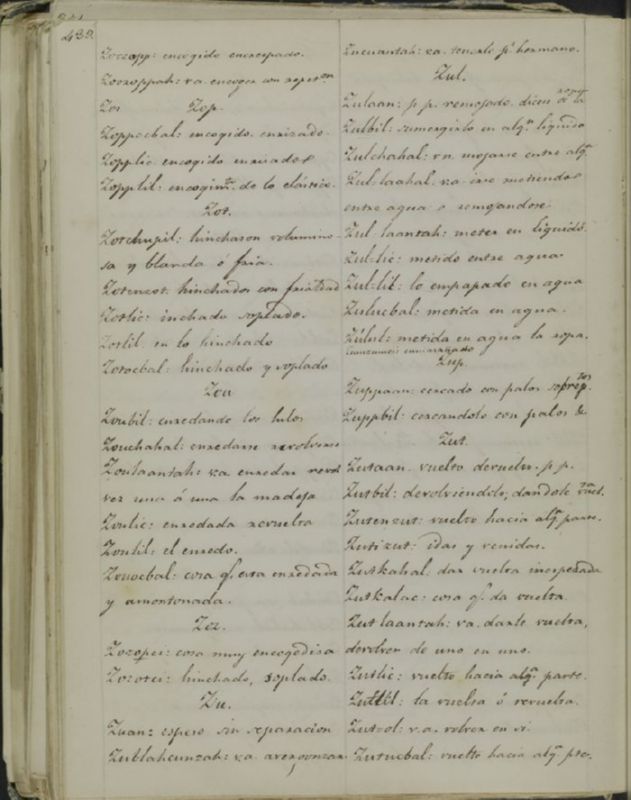 432.
Zoczopp: encogido encrespado.
Zoczoppah: v.a. encoger con
Zop.
Zoppochal: encogido. enrizado.
Zopplic: encogido enrizado
Zopplil: de lo elástico.
Zot.
Zotchupil: hinchazon volumino-
sa y blanda ó fria.
Zotenzot: hinchados con frialdad
Zotlic: inchado soplado.
Zotlil: en lo hinchado
Zotocbal: hinchado y soplado
Zou
Zoubil: enredando los hilos
Zouchahal: enredarse revolverse
Zoulaantah: v.a. enredar revol
vez una á una la madeja
Zoulic: enredada revuelta
Zoulil: el enredo.
Zouocbal: cosa q.e esta enredada
y amontonada.
Zoz.
cosa muy encogidisa
Zozotci: hinchado, soplado.
Zu.
Zuan: espeso sin separacion
v.a. avergonzar
v.a. tenerle p.r hermano.
Zul.
Zulaan: p. p. remojado. dicen de la
ropa
Zulbil: sumergirlo en alg.n liquido
Zulchahal: v.n. mojarse entre alg.
Zul-taahal v.a. irse metiendo
entre agua o remojandose
Zul-laantah: meter en liquido.
Zul-lic: metido entre agua
Zul-lil: lo empapado en agua
Zulucbal: metida en agua.
Zulul: metida en agua la ropa.
Zup.
Zuppaan: cercado con palos
Zuppbil: cercandolo con palos &
Zut.
Zutaan. vuelto devuelto. p. p.
Zutbil: devolviendolo, dandole vuelt.
Zutenzut: vuelto hacia alg.a parte.
Zutizut: idas y venidas.
Zutkahal: dar vuelta inesperada
Zutkalac: cosa q.e da vuelta
Zutlaantah: v.a. darle vuelta,
devolver de uno en uno.
Zutlic: vuelto hacia alg.a parte.
Zutlil: la vuelta ó revuelta.
Zutzol: v.a. volver en si
Zutucbal: vuelto hacia alg.a pte.